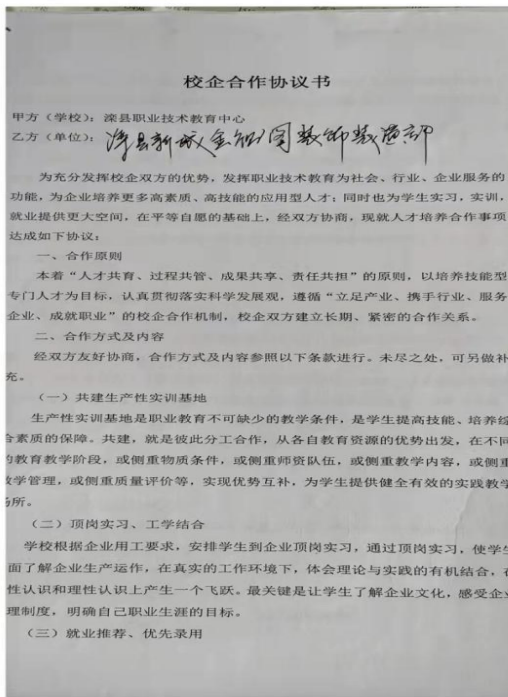 校企合作协议书
甲方（学校）：滦县职业技术教育中心
乙方（单位）：滦县新城金钥图装饰装潢部
为充分发挥校企双方的优势，发挥职业技术教育为社会、行业、企业服务的
功能，为企业培养更多高素质、高技能的应用型人才；同时也为学生实习，实训，
就业提供更大空间，在平等自愿的基础上，经双方协商，现就人才培养合作事项
达成如下协议：
一、合作原则
本着“人才共育、过程共管、成果共享、责任共担”的原则，以培养技能型
专门人才为目标，认真贯彻落实科学发展观，遵循“立足产业、携手行业、服务
企业、成就职业”的校企合作机制，校企双方建立长期、紧密的合作关系。
二、合作方式及内容
经双方友好协商，合作方式及内容参照以下条款进行。未尽之处，可另做补
充。
（一）共建生产性实训基地
生产性实训基地是职业教育不可缺少的教学条件，是学生提高技能、培养综
合素质的保障。共建，就是彼此分工合作，从各自教育资源的优势出发，在不同
的教育教学阶段，或侧重物质条件，或侧重师资队伍，或侧重教学内容，或侧重
教学管理，或侧重质量评价等，实现优势互补，为学生提供健全有效的实践教学
场所。
（二）顶岗实习、工学结合
学校根据企业用工要求，安排学生到企业顶岗实习，通过顶岗实习，使学生
面了解企业生产运作，在真实的工作环境下，体会理论与实践的有机结合，在
性认识和理性认识上产生一个飞跃。最关键是让学生了解企业文化，感受企业
理制度，明确自己职业生涯的目标。
（三）就业推荐、优先录用